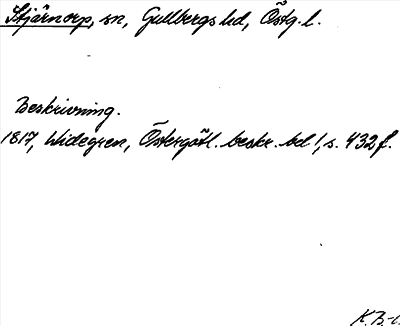 Stjärnorp, sn, Gullbergs hd, Östg. l.
Beskrivning.
1817, Widegren, Östergötl. beskr. bd 1, s. 432 f.
K.B-